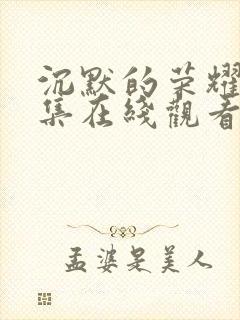 沉默的荣耀
集在綫觀看
孟婆是美人